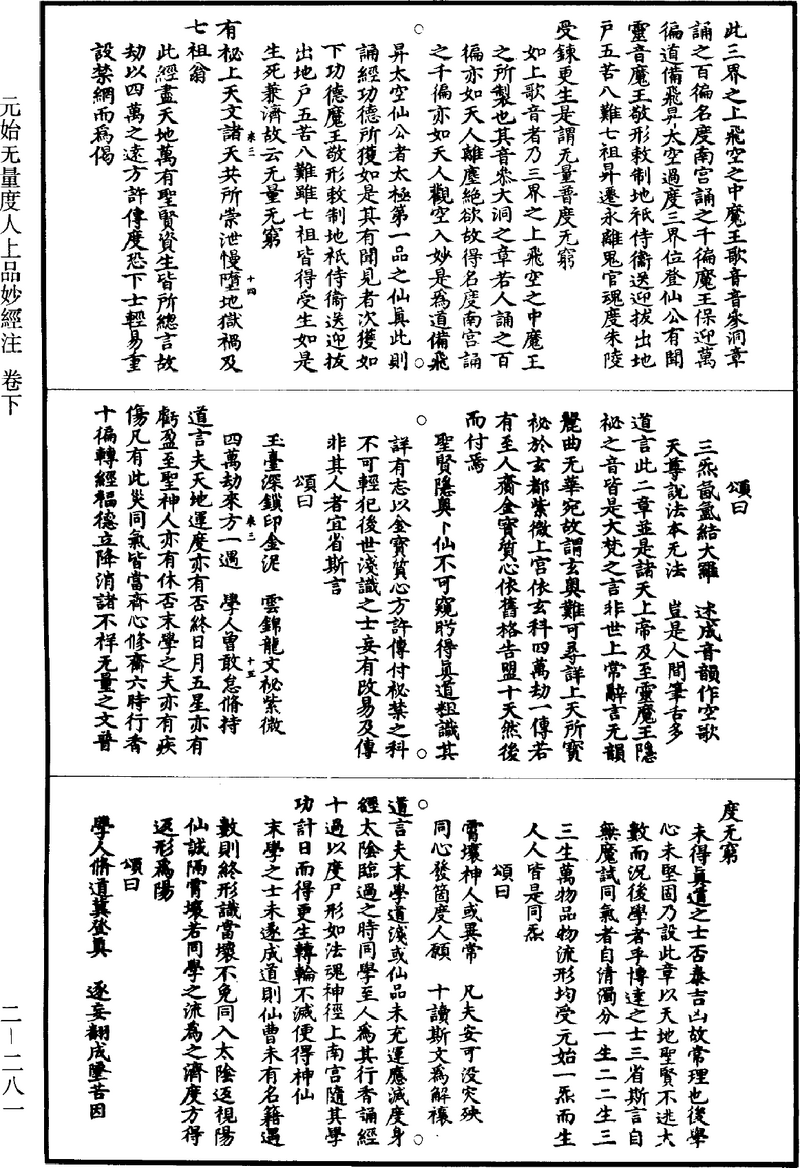 元始无量度人上品妙經注 卷下
二—二八一
此三界之上飛空之中魔王歌音音參洞章
誦之百徧名度南宫誦之千徧魔王保迎萬
徧道備飛昇太空過度三界位登仙公有聞
靈音魔王敬形敕制地祇侍衞送迎拔出地
户五苦八難七祖昇遷永離鬼官魂度朱陵
受鍊更生是謂无量普度无窮
如上歌音者乃三界之上飛空之中魔王
之所製也其音參大洞之章若人誦之百
徧亦如天人離塵絶欲故得名度南宫誦
之千徧亦如天人觀空入妙是爲道備飛
昇太空仙公者太極第一品之仙眞此則
誦經功德所獲如是其有聞見者次獲如
下功德魔王敬形敕制地祇侍衞送迎拔
出地户五苦八難雖七祖皆得受生如是
生死兼濟故云无量无窮
卷三 十四
有祕上天文諸天共所崇泄慢墮地獄禍及
七祖翁
此經盡天地萬有聖賢資生皆所總言故
劫以四萬之遠方許傳度恐下士輕易重
設禁網而爲偈
頌曰
三炁氤氲結大羅 述成音韻作空歌
天尊説法本无法 豈是人間筆舌多
道言此二章並是諸天上帝及至靈魔王隱
祕之音皆是大梵之言非世上常辭言无韻
麗曲无華宛故謂玄奥難可尋詳上天所寶
祕於玄都紫微上宫依玄科四萬劫一傳若
有至人齎金寶質心依舊格告盟十天然後
而付焉
聖賢隱奥卜仙不可窺眄得眞道粗識其
詳有志以金寶質心方許傳付祕禁之科
不可輕犯後世淺識之士妄有改易及傳
非其人者宜省斯言
頌曰
玉臺深鎖印金泥 雲錦龍文祕紫微
卷三 十五
四萬劫來方一遇 學人曾敢怠脩持
道言夫天地運度亦有否終日月五星亦有
虧盈至聖神人亦有休否末學之夫亦有疾
傷凡有此災同氣皆當齊心修齋六時行香
十徧轉經福德立降消諸不祥无量之文普
度无窮
未得眞道之士否泰吉凶故常理也後學
心未堅固乃設此章以天地聖賢不逃大
數而況後學者乎博達之士三省斯言自
無魔試同氣者自清濁分一生二二生三
三生萬物品物流形均受元始一炁而生
人人皆是同炁
頌曰
霄壤神人或異常 凡夫安可没灾殃
同心發箇度人願 十讀斯文爲解禳
道言夫末學道淺或仙品未充運應滅度身
經太陰臨過之時同學至人爲其行香誦經
十過以度尸形如法魂神徑上南宫隨其學
功計日而得更生轉輪不滅便得神仙
末學之士未遂成道則仙曹未有名籍遇
數則終形識當壞不免同入太陰迈視陽
仙誠隔霄壤若同學之流爲之濟度方得
返形爲陽
頌曰
學人脩道冀登眞 逐妄翻成墮苦因